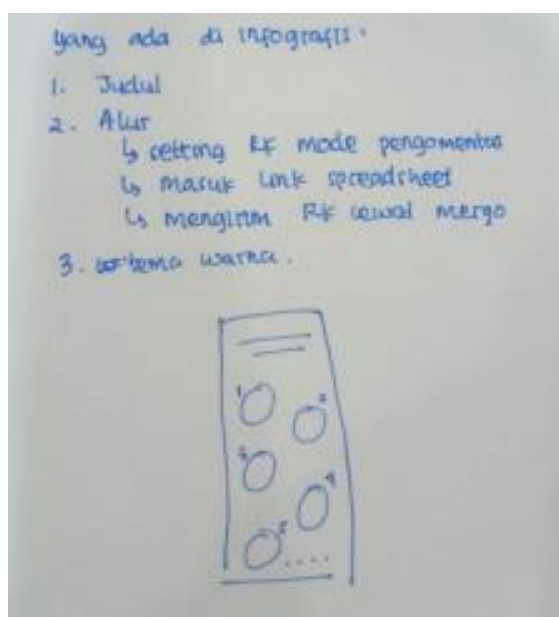 yang ada di infografis.
1. Judul
2. Alur
↳ setting RK mode pengomentar
↳ masuk link spreadsheet
↳ mengirim RK lewat
3. tema warna.
1
2
3
4
5 ....